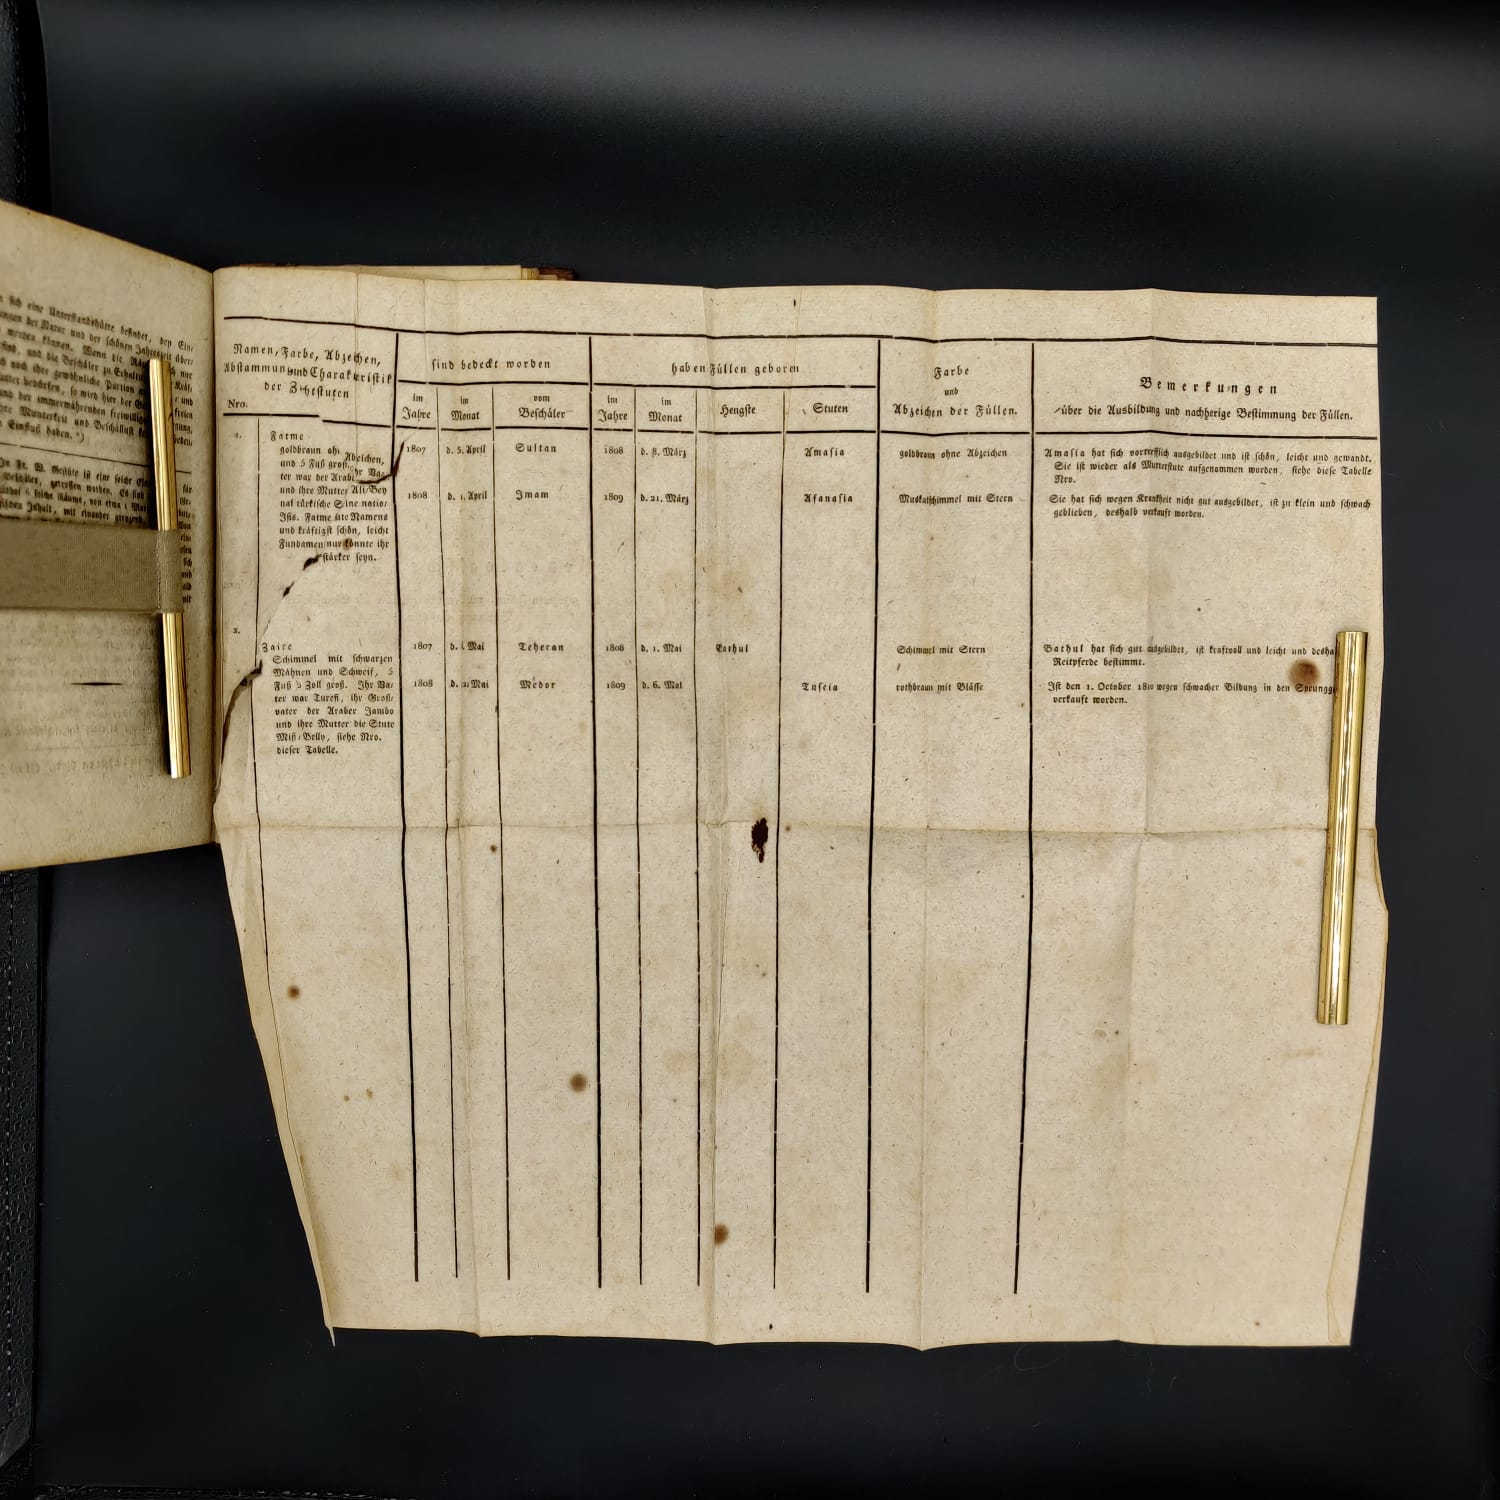 sich eine Unterstandshütte befindet, den Ein-
der Natur und der schönen Jahreszeit über-
werden können. Wenn die
und die Beschäler zu
noch ihre gewöhnliche Portion
bedürfen, so wird hier der
der immerwährenden
Munterkeit und Beschällust
Einfluß haben. *)
Fr. W. Gestüte ist eine solche
Beschäler, getroffen worden. Es sind
solche Räume, von etwa
Inhalt, mit einander
Namen, Farbe, Abzeichen,
Abstammung und Charakteristik
der Zuchtstuten
Nro.
sind bedeckt worden
im Jahre
im Monat
vom Beschäler
haben Füllen geboren
im Jahre
im Monat
Hengste
Stuten
Farbe
und
Abzeichen der Füllen.
Bemerkungen
über die Ausbildung und nachherige Bestimmung der Füllen.
1.
Fatme
goldbraun ohne Abzeichen,
und 5 Fuß groß. Ihr Va-
ter war der Araber
und ihre Mutter Ali-Bey
nat türkische Stute natio-
Isis. Fatme ihres Namens
und kräftigst schön, leicht
Fundament nur könnte ihr
stärker seyn.
1807 d. 5. April Sultan 1808 d. 8. März Amasia goldbraun ohne Abzeichen
Amasia hat sich vortrefflich ausgebildet und ist schön, leicht und gewandt.
Sie ist wieder als Mutterstute aufgenommen worden, siehe diese Tabelle
Nro.
1808 d. 1. April Imam 1809 d. 21. März Asanasia Muskatschimmel mit Stern
Sie hat sich wegen Krankheit nicht gut ausgebildet, ist zu klein und schwach
geblieben, deshalb verkauft worden.
2.
Zaire
Schimmel mit schwarzen
Mähnen und Schweif, 5
Fuß 2 Zoll groß. Ihr Va-
ter war Turefi, ihr Groß-
vater der Araber Jambo
und ihre Mutter die Stute
Miß-Belly, siehe Nro.
dieser Tabelle.
1807 d. Mai Teheran 1808 d. 1. Mai Bathul Schimmel mit Stern
Bathul hat sich gut ausgebildet, ist kraftvoll und leicht und
Reitpferde bestimmt.
1808 d. 2. Mai Medor 1809 d. 6. Mai Tuscia rothbraun mit Blässe
Ist den 1. October 1810 wegen schwacher Bildung in den
verkauft worden.